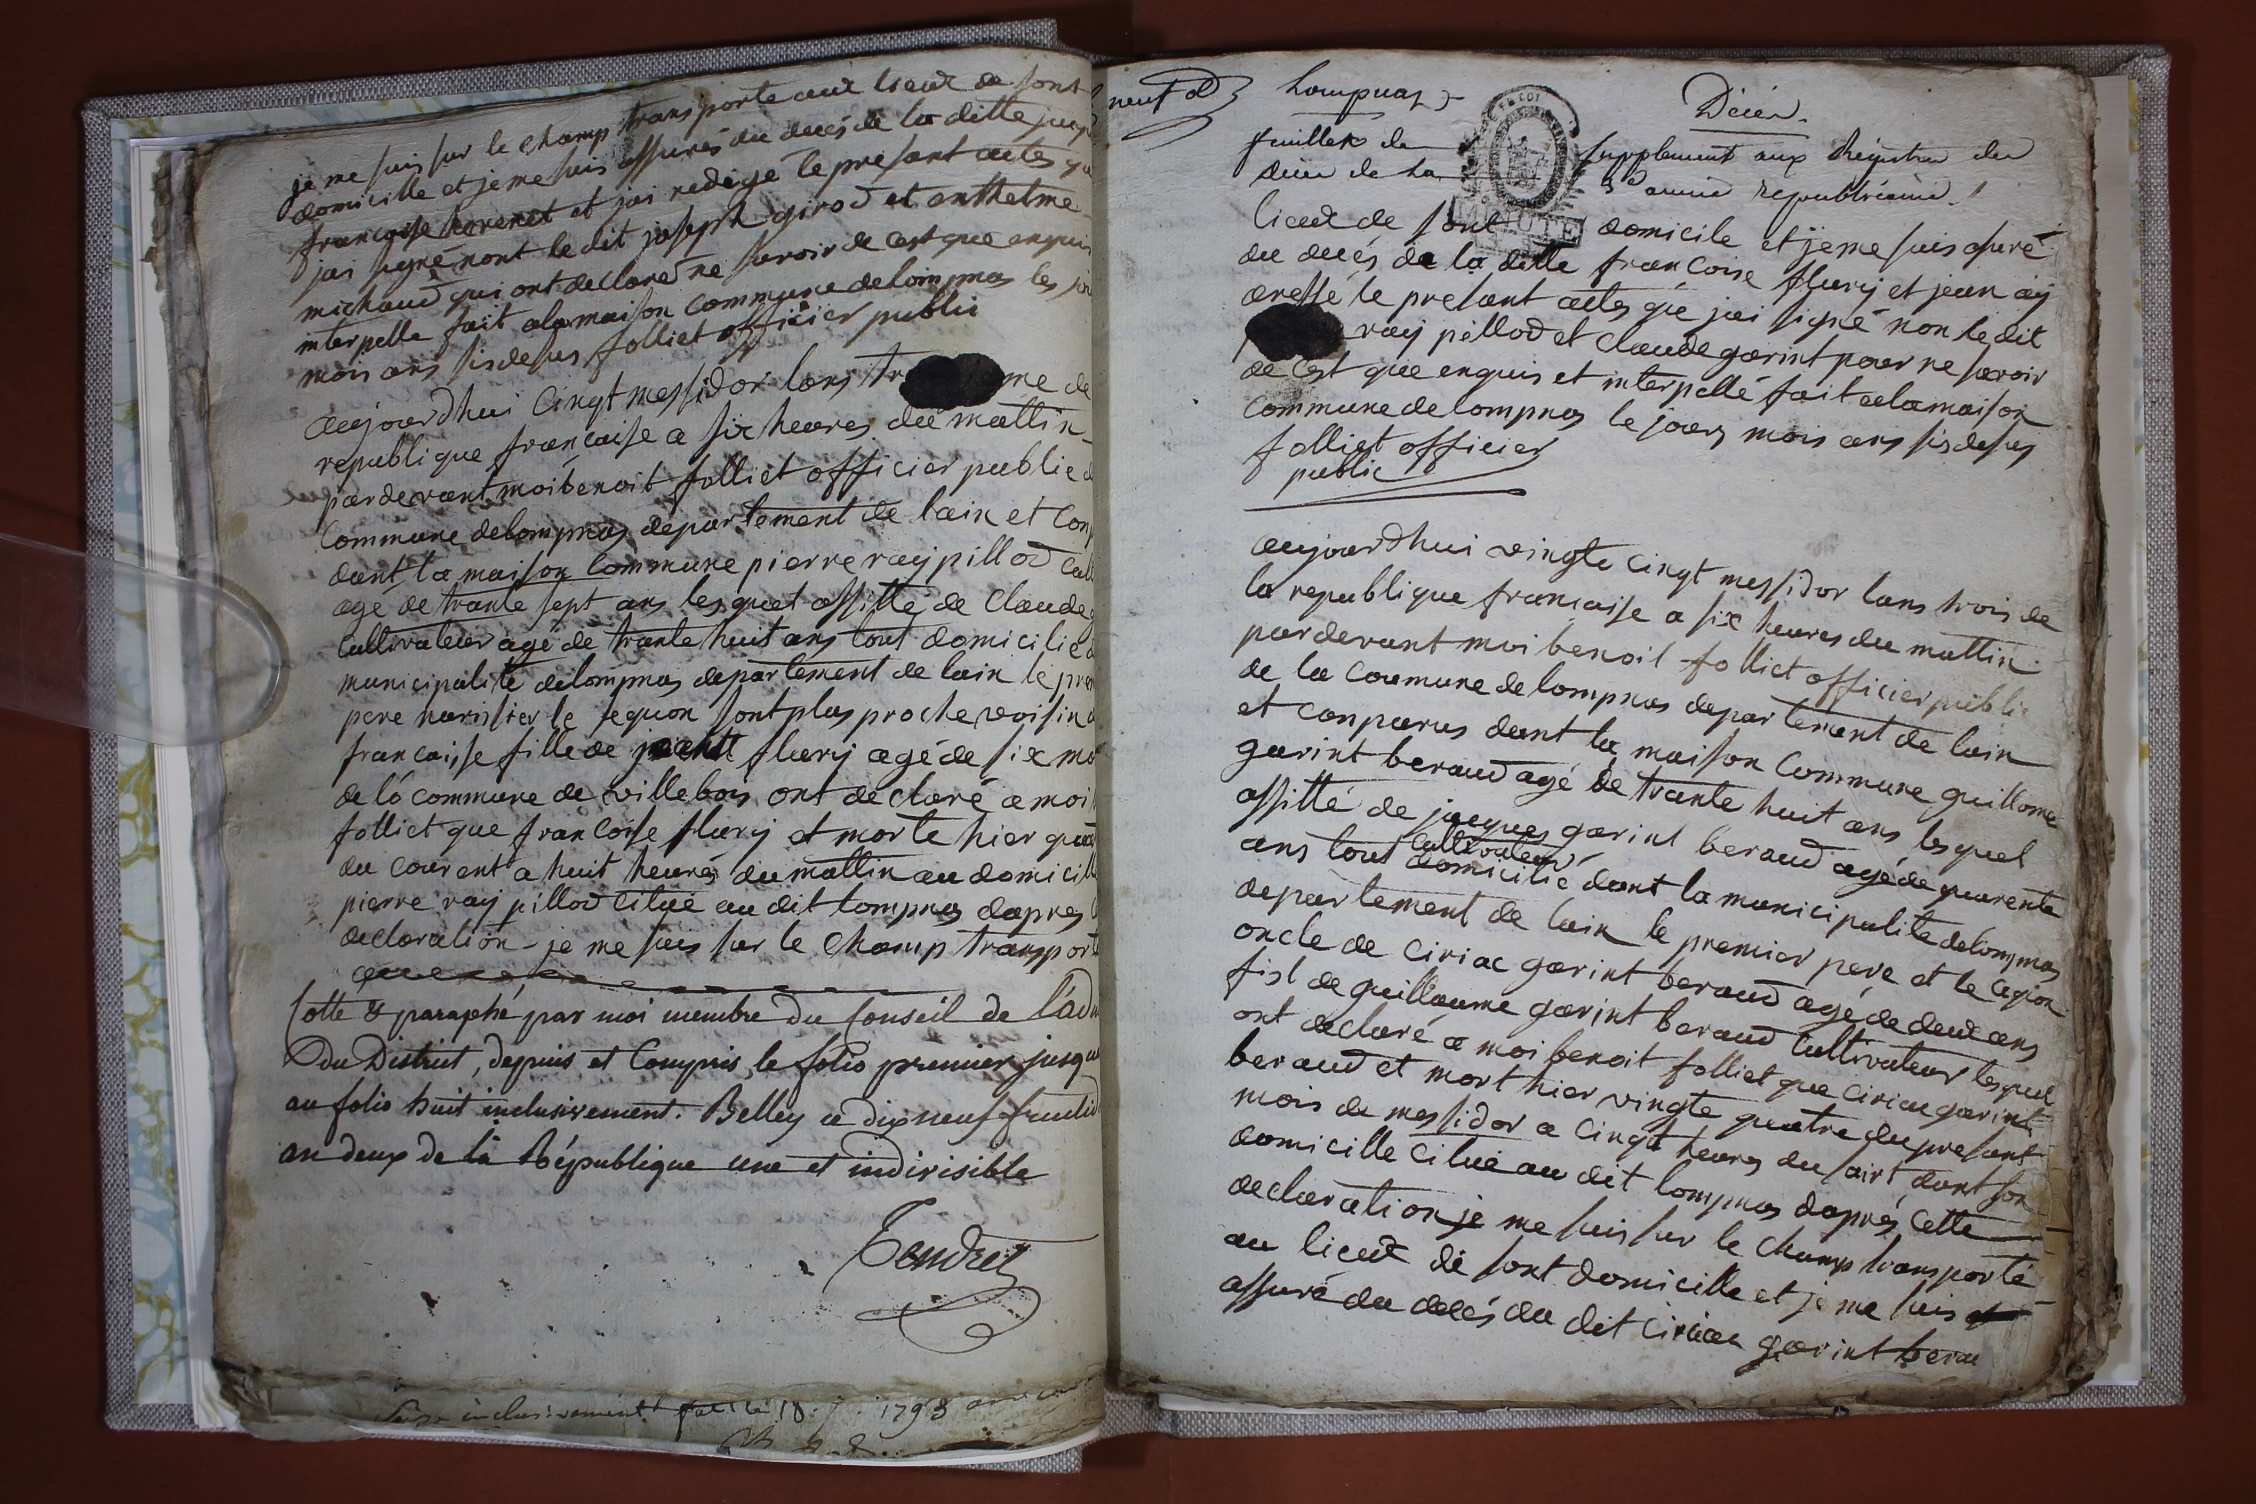 je me suis sur le champ transporte aux lieux de sont
domicille et je me suis assurés du décés de la ditte
francoise et jai redigé le presant actes
jai signé nont le dit joseph girod et anthelme
michaud qui ont declared ne savoir de cest que enquis
interpelle fait a la maison commune delompnas les
mois ans sisdesus folliet officier public
aujourdhui cinqt messidor lans me de
republique francaise a six heures du mattin
pardevant moi benoit folliet officier public
commune delompnas departement de lain et
dant la maison commune pierre raÿ pillod
agé de trante sept ans lesquel assitte de claude
cultivateur agé de trante huit ans tout domicilie
municipalite delompnas departement de lain le
pere le segon sont plus proche voisin
francaisse fille de flurÿ agé de six
de la commune de villebois ont déclaré a moi
folliet que francoise flurÿ et morte hier
du courent a huit heures du mattin au domicille
pierre raÿ pillod citué au dit lompnas dapres
declaration je me suis sur le champ
Cotté & paraphé par moi membre du Conseil de
Du District, depuis et Compris le folio premier
au folio huit inclusivement. Belley ce dix neuf
an deux de la République une et indivisible
Tendret
inclusivement 18 1793
neuf
Lompnas
Décès.
feuillet de supplement aux Registres des
décès de la 3e année républicaine
MINUTE
lieux de sont domicile et je me suis asuré
du decés de la ditte francoise flurÿ et jean aÿ
dressé le presant actes que jai signé non le dit
raÿ pillod et claude garint pour ne savoir
de cest que enquis et interpellé fait a la maison
commune de lompnas le jours mois ans sisdesus
folliet officier
public
aujourdhui vingte cinqt messidor lans trois de
la republique francaise a six heures du mattin
pardevant moi benoit folliet officier public
de la commune de lompnas departement de lain
et conparus dant la maison commune guillome
garint beraud agé de trante huit ans lesquel
assitté de jacques garint beraud agé de quarente
cultivateur
ans tout domicilié dant la municipalite delompnas
departement de lain le premier pere et le segon
oncle de ciriac garint beraud agé de deux ans
fist de guillaume garint beraud cultivateur lesquel
ont declaré a moi benoit folliet que ciriac garint
beraud et mort hier vingte quatre du presant
mois de messidor a cinqt heures du sairt dant son
domicille citué au dit lompnas daprés cette
declaration je me suis sur le champ transporté
au lieux de sont domicille et je me suis
assuré du decés du dit ciriac garint